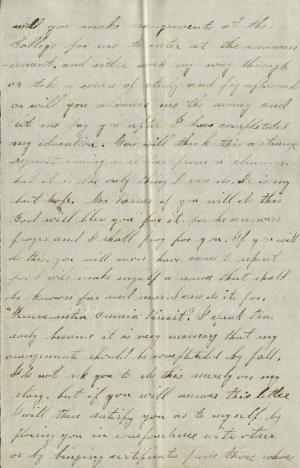 will you make arrangements at the
College for me to enter at the commence
-cement, and either work my way through
or take a course of study and pay afterward
or will you advance me the money and
let me pay you after I have completed
my education. You will think this a strange
request coming from a stranger,
but it is the only thing I can do. It is my
last hope. if you will do this
God will bless you for it. for he answers
prayer and I shall pray for you. If you will
do this, you will never have cause to regret
for I will make myself a man that shall
be known far and near. I can do it, for,
"Perseverantia omnia vincit." I speak thus
early because it is very necessary that my
arrangements should be completed by fall.
I do not ask you to do this merely on my
story, but if you will answer this letter
I will then satisfy you as to myself, by
placing you in correspondence with others
or by bringing certificates from those whose